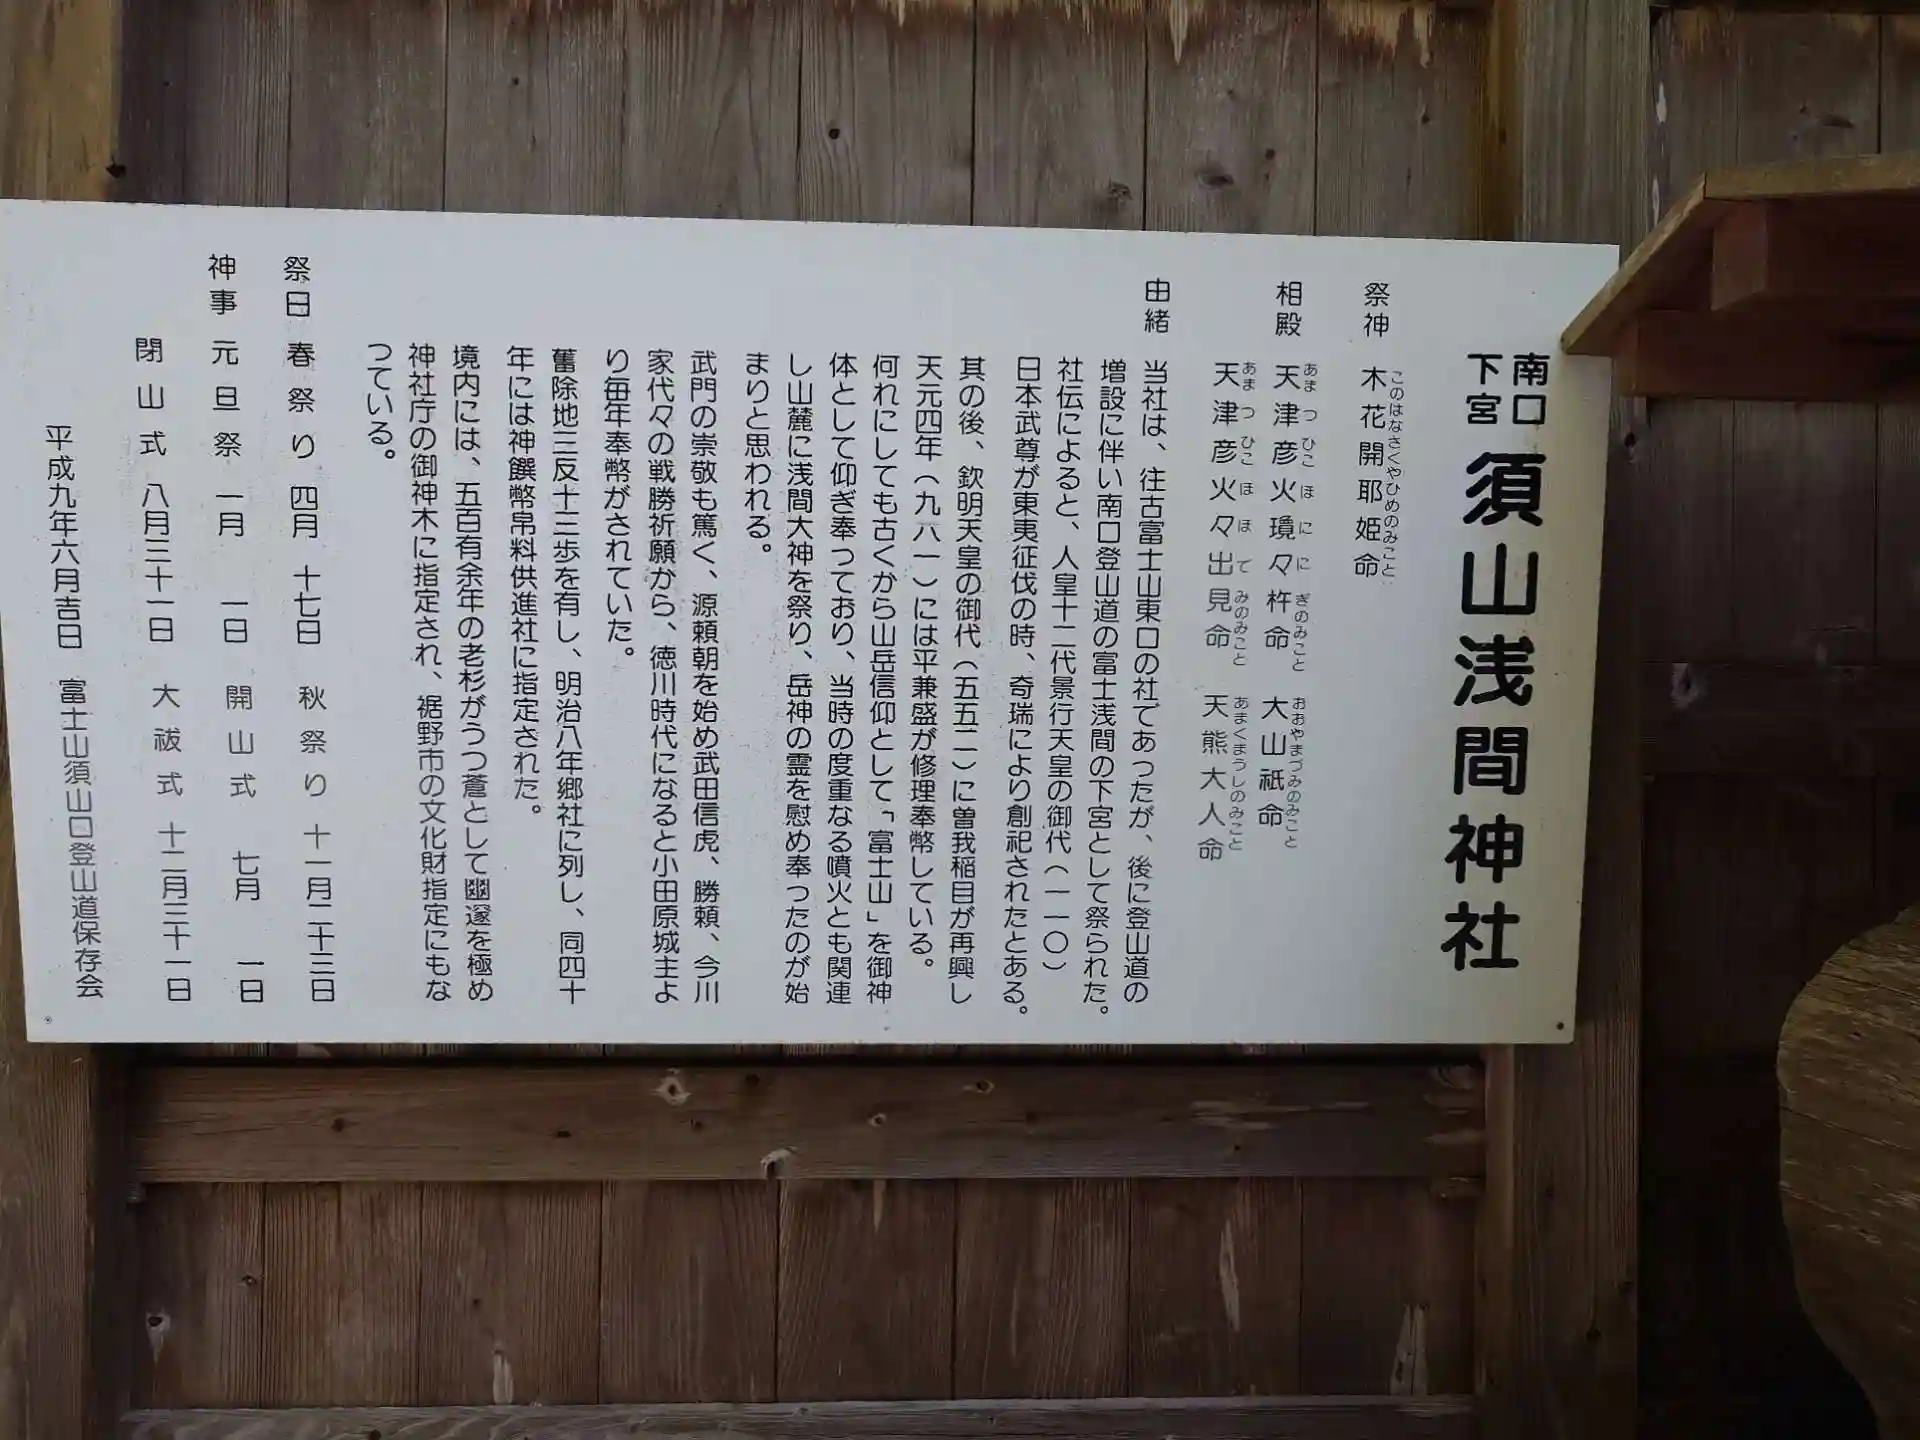 南口
下宮
須山浅間神社
祭神 木花開耶姫命
このはなさくやひめのみこと
相殿 天津彦火瓊々杵命 大山祇命
あまつひこほににぎのみこと おおやまづみのみこと
天津彦火々出見命 天熊大人命
あまつひこほほでみのみこと あまくまうしのみこと
由緒 当社は、往古富士山東口の社であったが、後に登山道の
増設に伴い南口登山道の富士浅間の下宮として祭られた。
社伝によると、人皇十二代景行天皇の御代(一一〇)
日本武尊が東夷征伐の時、奇瑞により創祀されたとある。
其の後、欽明天皇の御代(五五二)に曽我稲目が再興し
天元四年(九八一)には平兼盛が修理奉幣している。
何れにしても古くから山岳信仰として「富士山」を御神
体として仰ぎ奉っており、当時の度重なる噴火とも関連
し山麓に浅間大神を祭り、岳神の霊を慰め奉ったのが始
まりと思われる。
武門の崇敬も篤く、源頼朝を始め武田信虎、勝頼、今川
家代々の戦勝祈願から、徳川時代になると小田原城主よ
り毎年奉幣がされていた。
旧除地三反十三歩を有し、明治八年郷社に列し、同四十
年には神饌幣帛料供進社に指定された。
境内には、五百有余年の老杉がうつ蒼として幽邃を極め
神社庁の御神木に指定され、裾野市の文化財指定にもな
っている。
祭日 春祭り 四月 十七日 秋祭り 十一月二十三日
神事 元旦祭 一月 一日 開山式 七月 一日
閉山式 八月三十一日 大祓式 十二月三十一日
平成九年六月吉日 富士山須山口登山道保存会